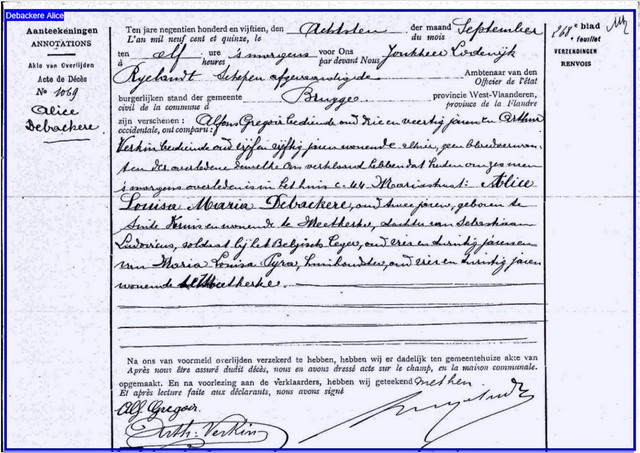 Debackere Alice
Aanteekeningen
ANNOTATIONS
Akte van Overlijden
Acte de Décès
No 1069
Alice
Debackere.
Ten jare negentien honderd en vijftien, den Achtsten der maand September
L'an mil neuf cent et quinze, le
ten elf ure 's morgens voor Ons Jonkheer Lodewijk
à heures par devant Nous
Ryelandt Schepen afgevaardigde Ambtenaar van den
Officier de l'état
burgerlijken stand der gemeente Brugge provincie West-Vlaanderen,
civil de la commune d province de la Flandre
zijn verschenen : Alfons Gregoir bediende oud drie en veertig jaren en Arthur
occidentale, ont comparu :
Verkin bediende oud vijf en vijftig jaren wonende alhier, geen bloedverwan-
ten der overledene dewelke Ons verklaard hebben dat heden om zes uren
's morgens overleden is in het huis C. 44 Mariastraat: Alice
Louisa Maria Debackere, oud twee jaren, geboren te
Sinte Kruis en wonende te Meetkerke, dochter van Sebastiaan
Ludovicus, soldaat bij het Belgisch Leger, oud dertig jaren en
van Maria Louisa Pyra, huishoudster, oud dertig jaren
wonende te Meetkerke.
Na ons van voormeld overlijden verzekerd te hebben, hebben wij er dadelijk ten gemeentehuize akte van
Après nous être assuré dudit décès, nous en avons dressé acte sur le champ, en la maison communale.
opgemaakt. En na voorlezing aan de verklaarders, hebben wij geteekend met hen.
Et après lecture faite aux déclarants, nous avons signé
Alf. Gregoir.
Arth. Verkin
268e blad
e feuillet
VERZENDINGEN
RENVOIS